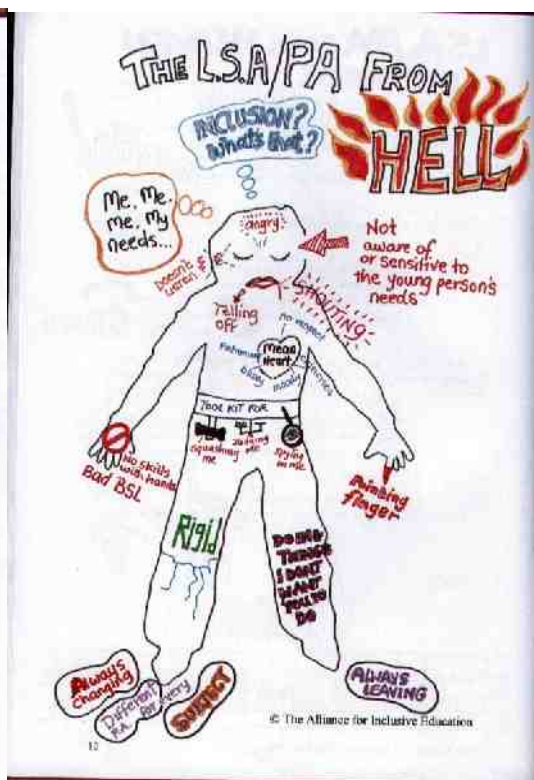 THE L.S.A/PA FROM
HELL
INCLUSION?
What's that?
Me, Me,
me, My
needs...
angry
Not
aware of
or sensitive to
the young person's
needs
Doesn't
listen
SHOUTING
Telling
off
no respect
Mean
Heart
bossy
moody
TOOL KIT FOR
squashing
me
Judging
me
Spying
on me
No skills
with hands
Bad BSL
Pointing
finger
Rigid
DOING
THINGS
I DON'T
WANT
YOU TO
DO
Always
changing
Different
P.A. for every
SUBJECT
ALWAYS
LEAVING
© The Alliance for Inclusive Education
10